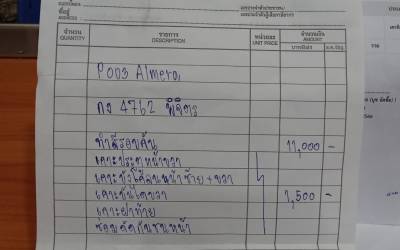 ที่อยู่
ADDRESS
จำนวน รายการ หน่วยละ จำนวนเงิน
QUANTITY DESCRIPTION UNIT PRICE AMOUNT
Almera
กง 4762 พิจิตร
ทำสีรอบคัน 11,000 -
เคาะประตูหน้าขวา
เคาะบังโคลนหน้าซ้าย+ขวา
เคาะบันไดขวา 7,500 -
เคาะฝาท้าย
ซ่อมคัดกันชนหน้า